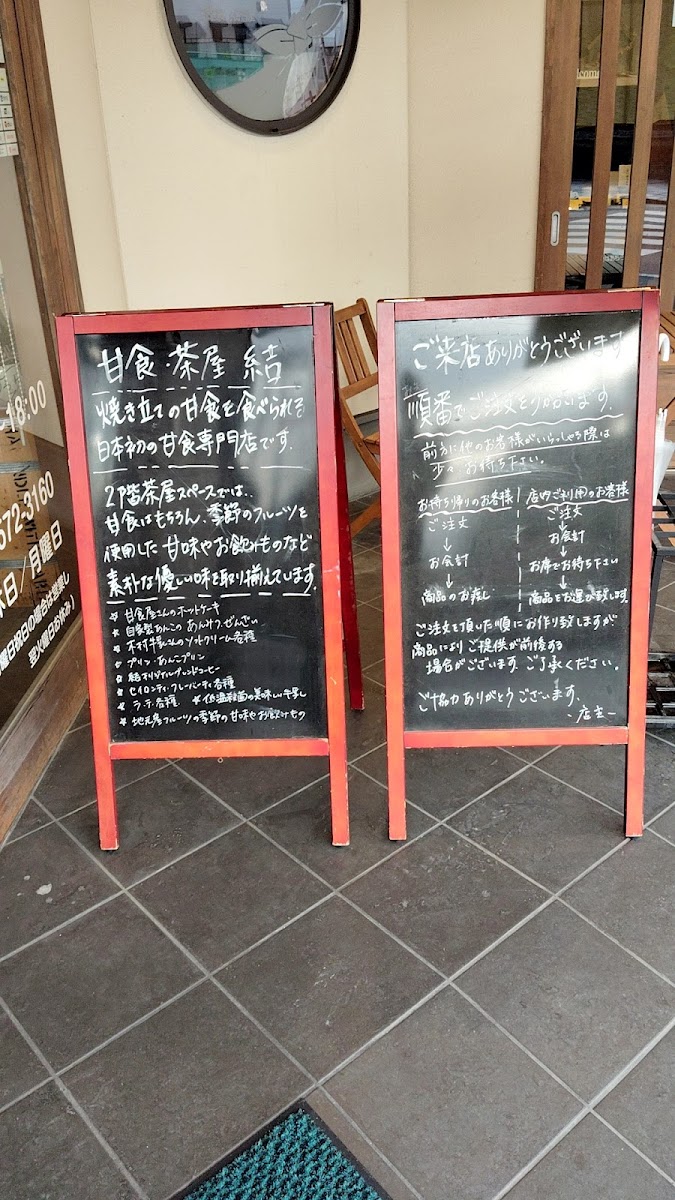 甘食・茶屋 結
焼き立ての甘食を食べられる
日本初の甘食専門店です。
2階茶屋スペースでは、
甘食はもちろん、季節のフルーツを
使用した甘味やお飲みものなど
素朴な優しい味を取り揃えています。
☆ 甘食屋さんのホットケーキ
☆ 自家製あんこのあんみつ、ぜんざい
☆ 木村牛乳さんのソフトクリーム各種
☆ プリン・あんこプリン
☆ 結オリジナルブレンドコーヒー
☆ セイロンティ フレーバーティ各種
☆ ラテ各種 ☆低温殺菌の美味しい牛乳
☆ 地元産フルーツの季節の甘味やお飲みもの
ご来店ありがとうございます
順番でご注文をうかがいます。
前方に他のお客様がいらっしゃる際は
少々お待ち下さい。
お持ち帰りのお客様
ご注文
↓
お会計
↓
商品のお渡し
店内ご利用のお客様
ご注文
↓
お会計
↓
お席でお待ち下さい
↓
商品をお運び致します。
ご注文を頂いた順にお作り致しますが
商品によりご提供が前後する
場合がございます。ご了承ください。
ご協力ありがとうございます。
-店主-
18:00
672-3160
日/月曜日
曜日祝日の場合は営業し
翌火曜日お休み)